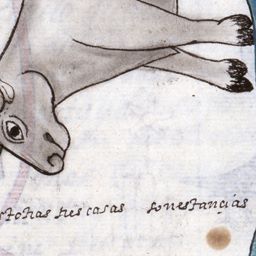 stohas tres casas sonestançias